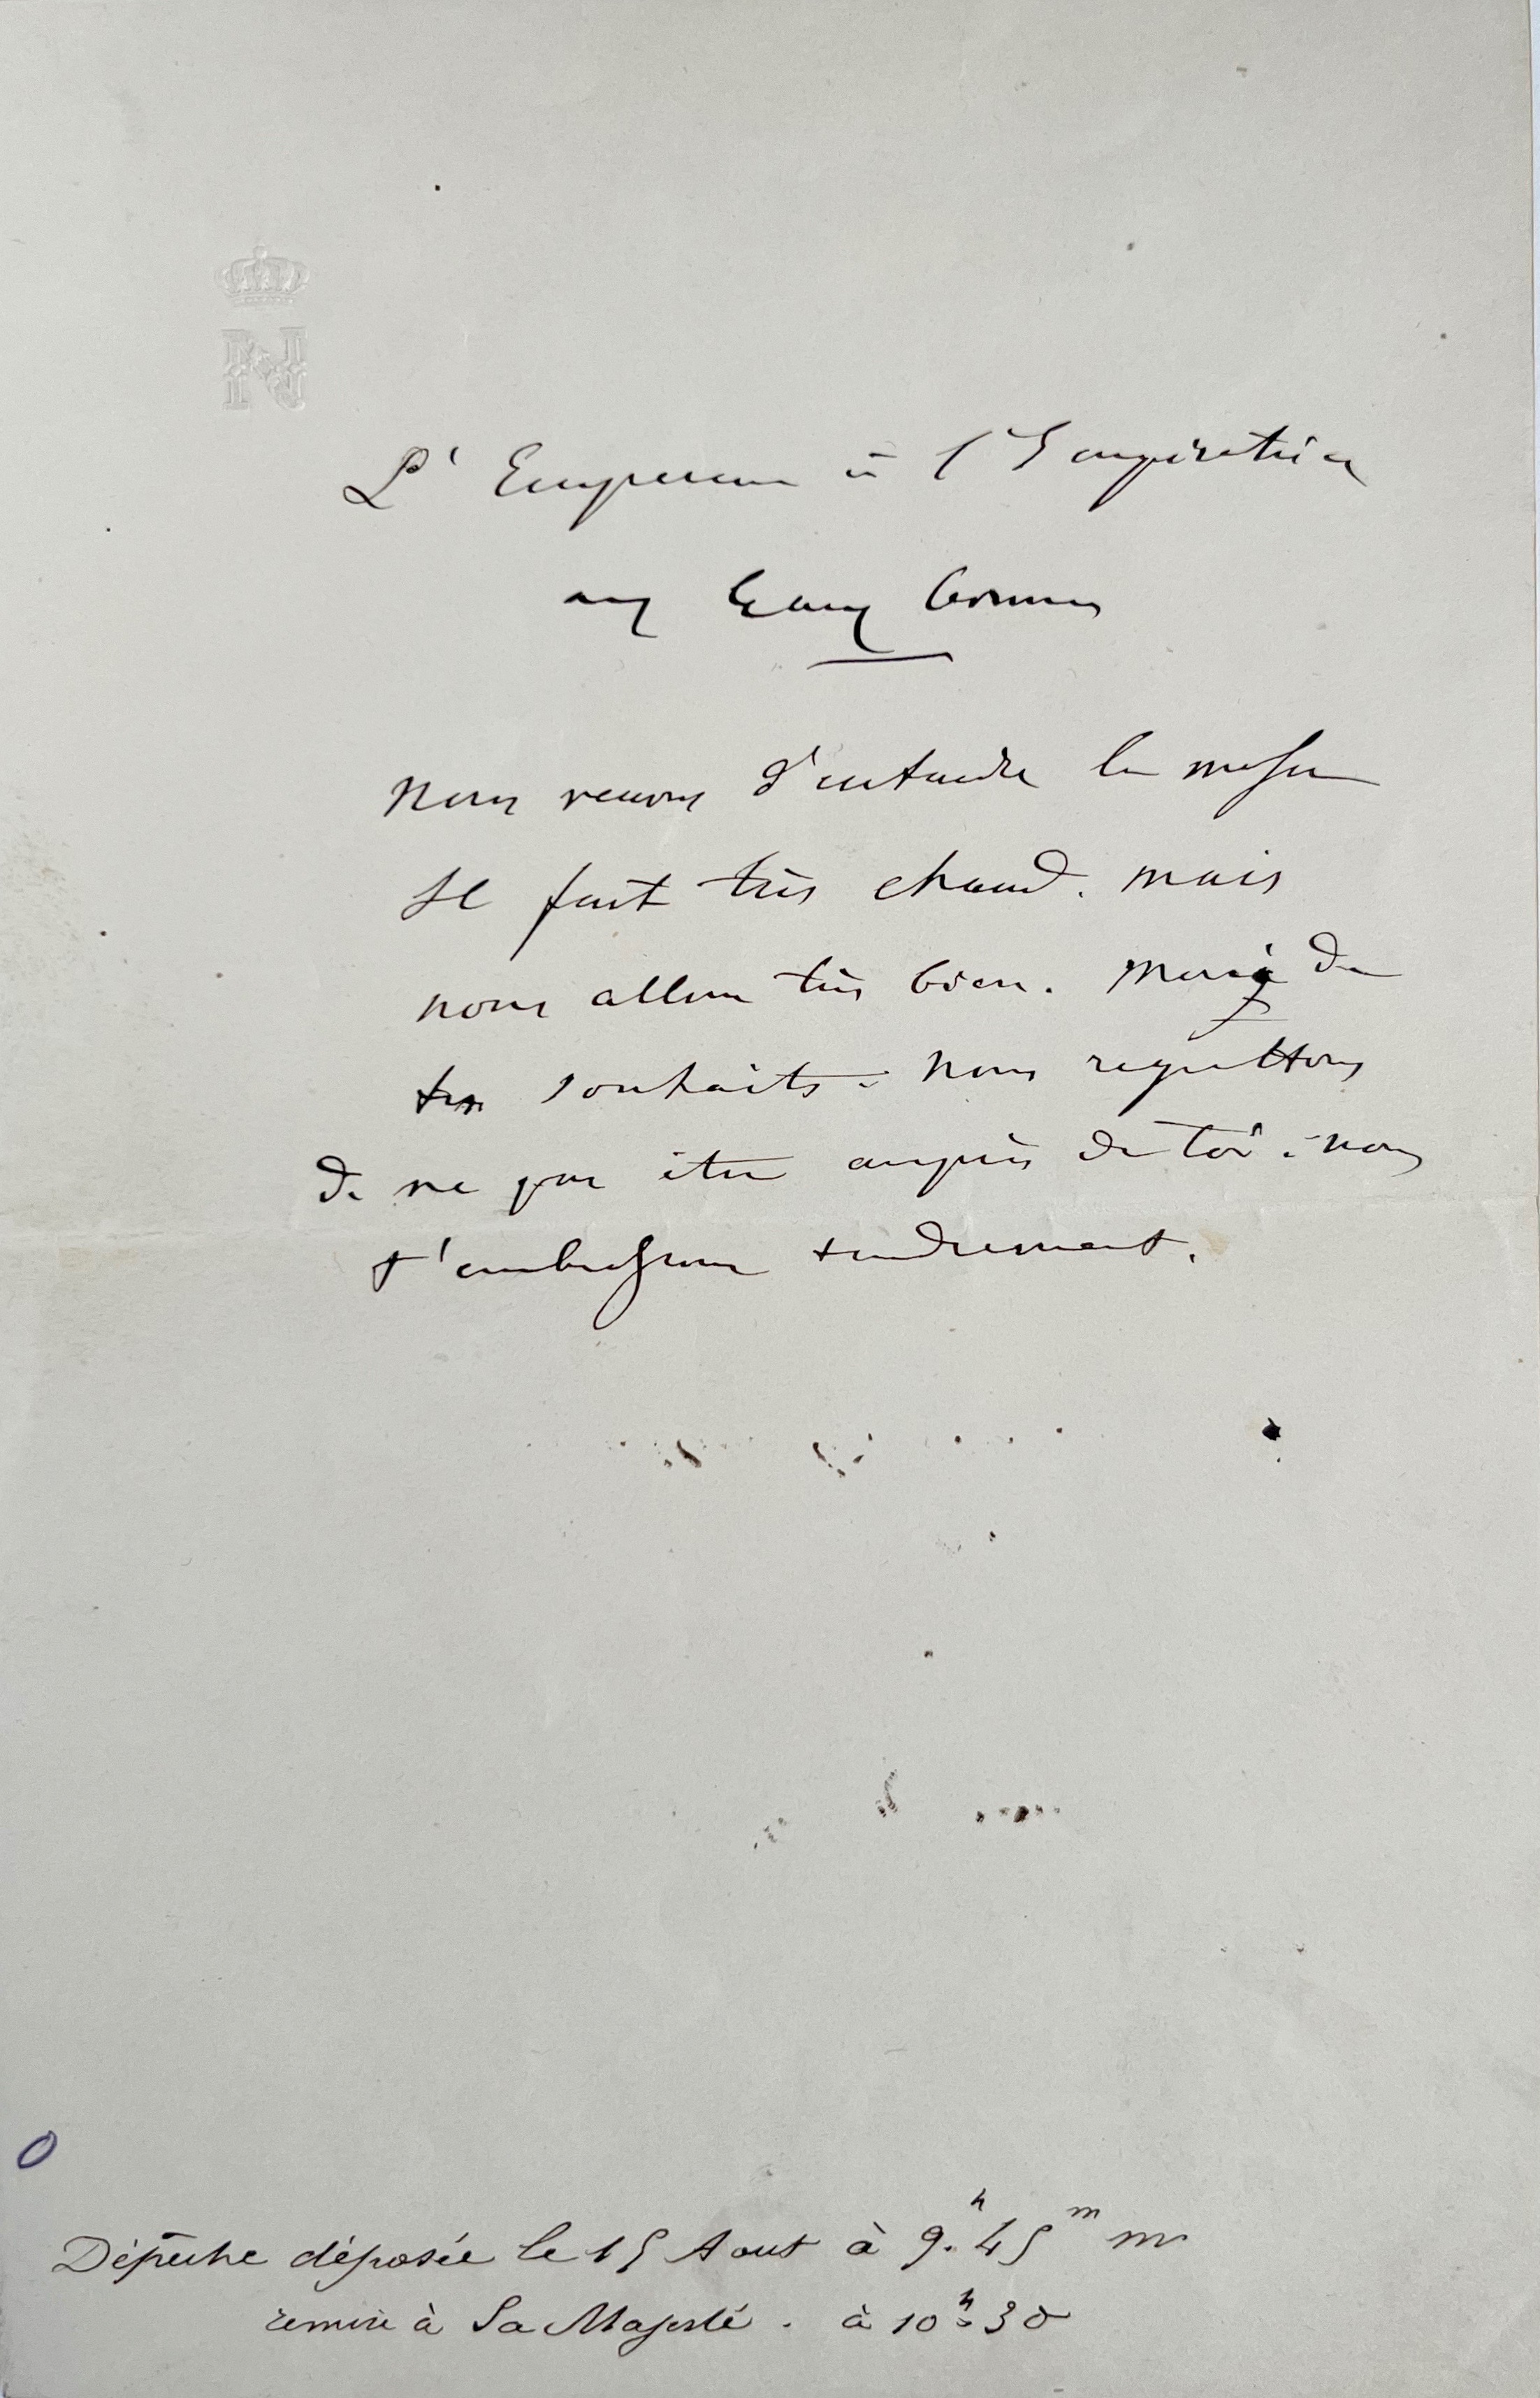 N
L'Empereur à l'Impératrice
aux Eaux Bonnes
Nous venons d'entendre la messe
Il fait très chaud. mais
nous allons très bien. Merci de
tes souhaits. Nous regrettons
de ne pas être auprès de toi. nous
t'embrassons tendrement.
Dépêche déposée le 15 Aout à 9.h 45m m
remise à Sa Majesté. à 10h 30